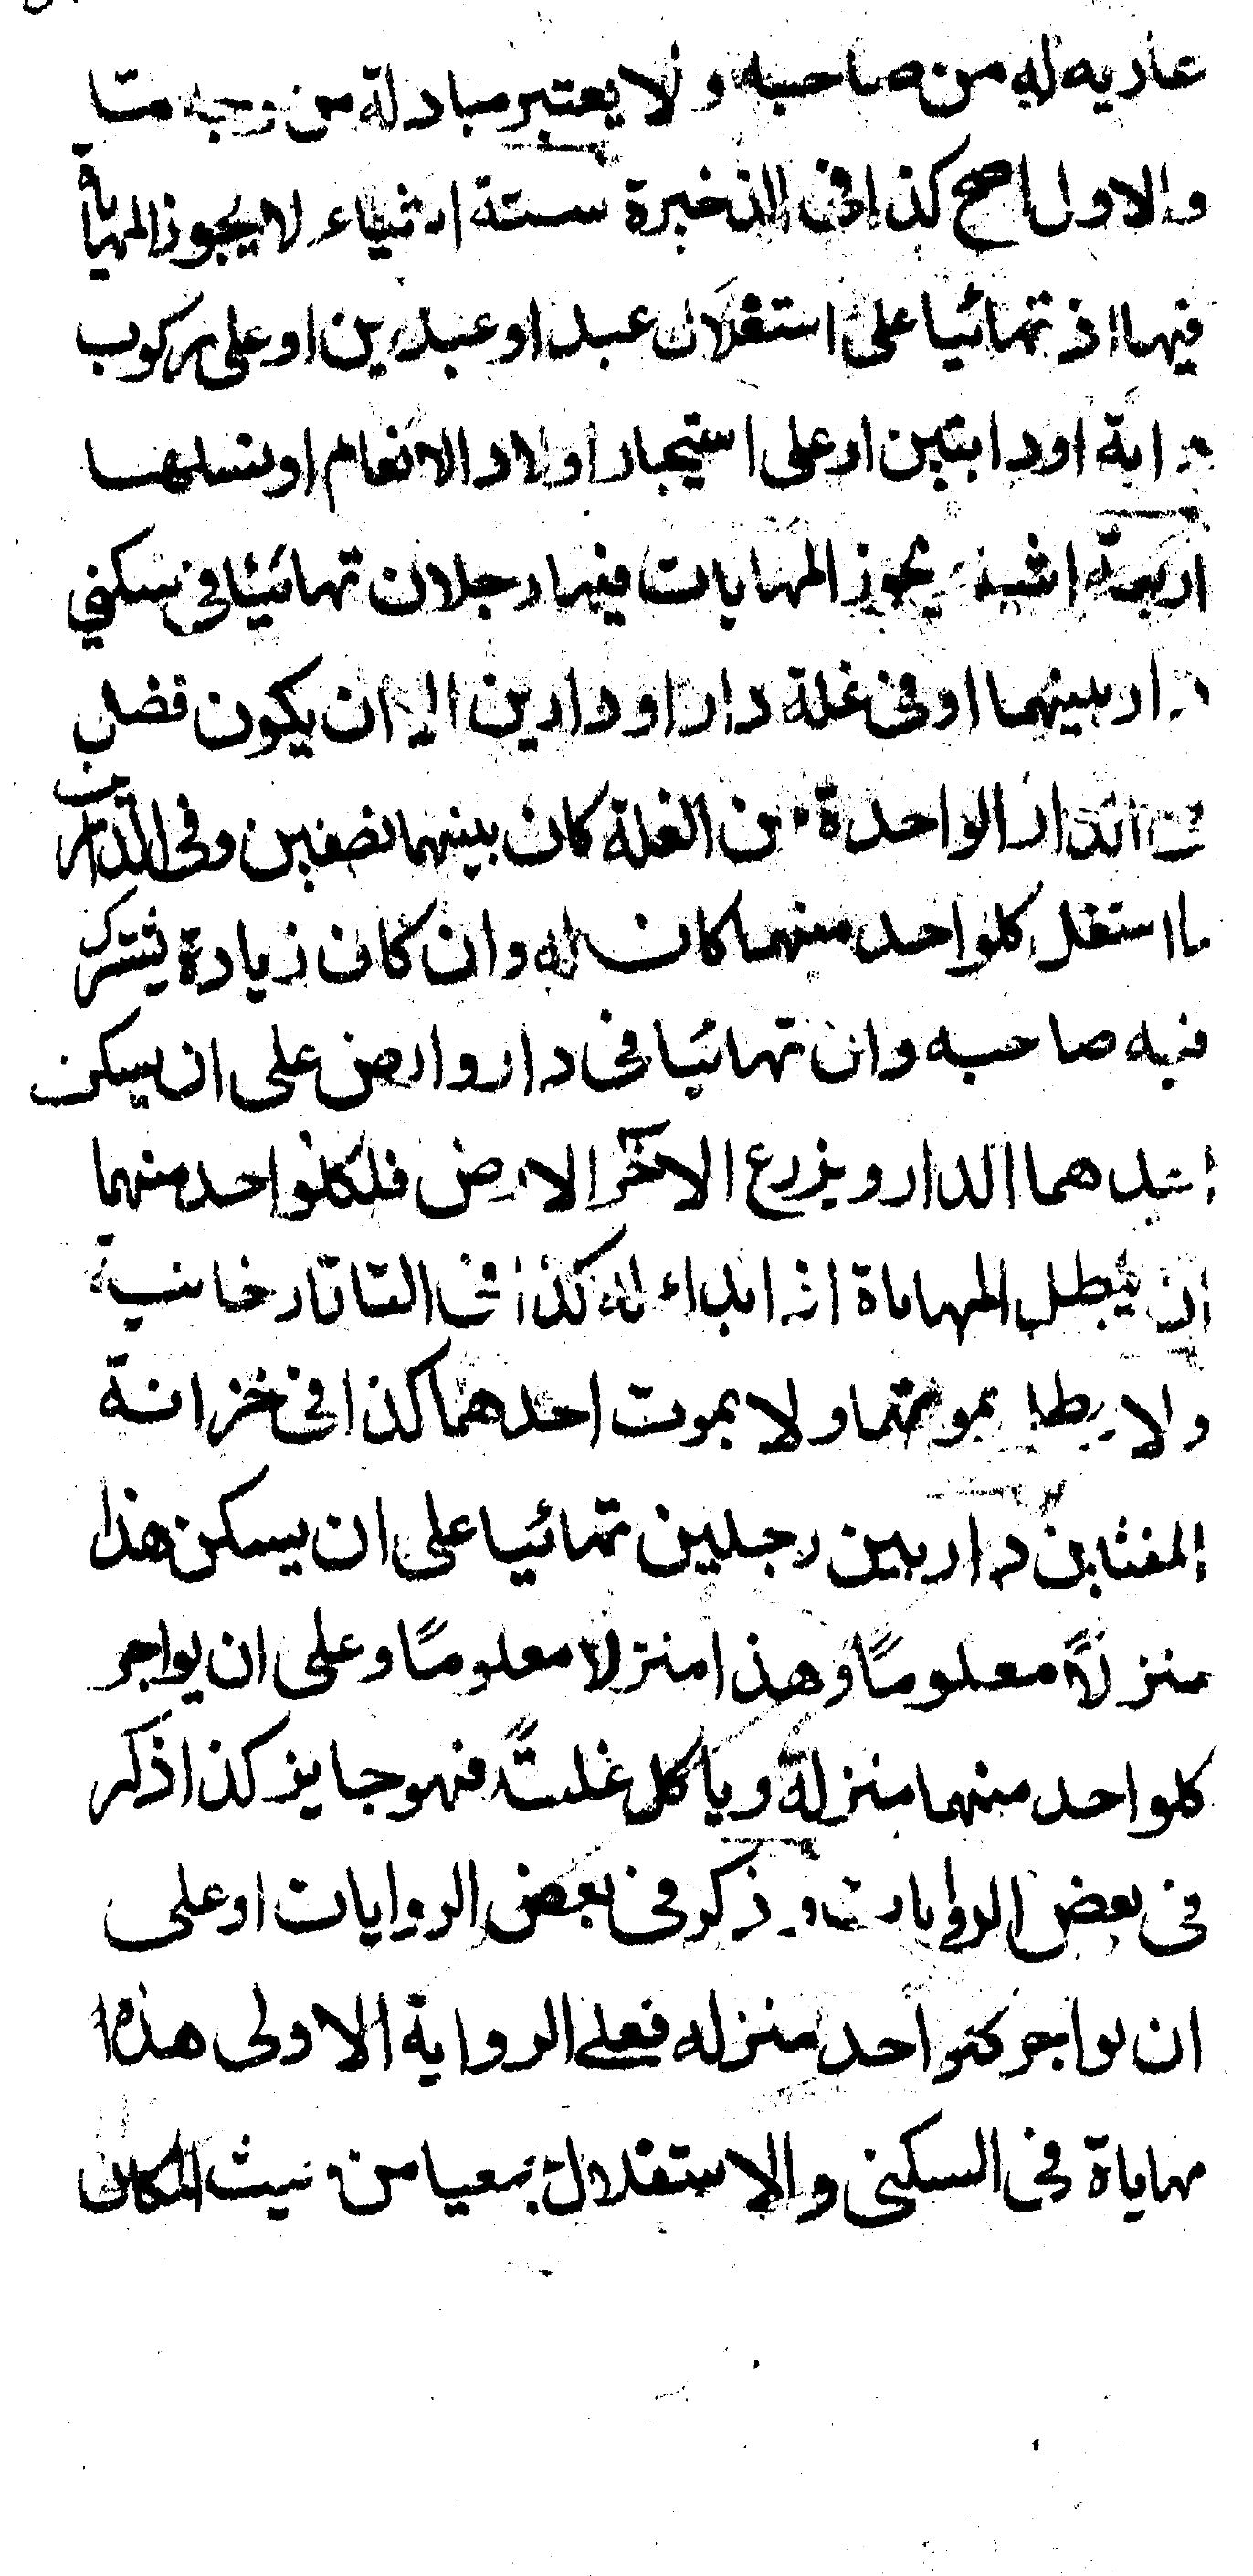 عاريه له من صاحبه ولا يعتبر مبادلة من وجه متا
والاول اصح كذا فى الذخيرة ستة اشياء لا يجوز المهاياة
فيها اذ تهائيا على استغلال عبد او عبدين او على ركوب
دابة او دابتين او على استيجار اولاد الانعام او نسلها
اربعة اشياء يجوز المهايات فيها رجلان تهائيا فى سكنى
دار بينهما او فى غلة دار او دارين الا ان يكون فضل
فى الدار الواحدة من الغلة كان بينهما نصفين وفى الدارين
ما استغل كلواحد منهما كان له وان كان زيادة يشترك
فيه صاحبه وان تهائيا فى دار وارض على ان يسكن
احدهما الدار ويزرع الآخر الارض فلكلواحد منهما
ان يبطل المهاياة اذا بداء له كذا فى التاتارخانية
ولا يبطل بموتهما ولا بموت احدهما كذا فى خزانة
المفتين دار بين رجلين تهائيا على ان يسكن هذا
منزلاً معلومًا وهذا منزلا معلومًا وعلى ان يواجر
كلواحد منهما منزله وياكل غلتً فهو جايز كذا ذكر
فى بعض الروايات وذكر فى بعض الروايات او على
ان يواجر كلواحد منزله فعلى الرواية الاولى هذا
مهاياة فى السكنى والاستغلال جميعا من حيث المكان